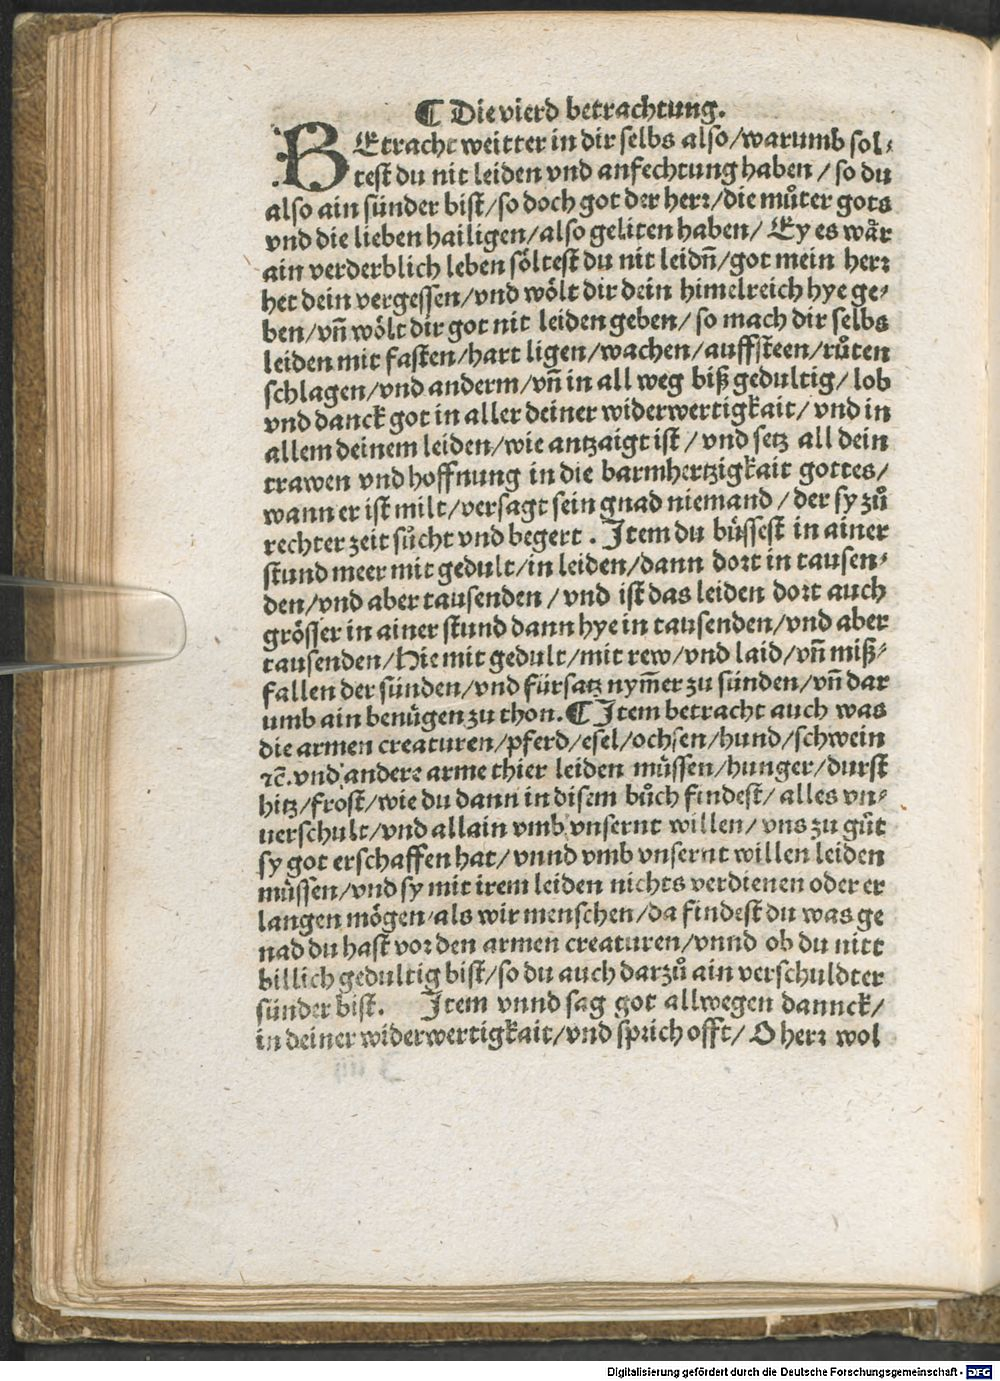 ¶ Die vierd betrachtung.
BEtracht weitter in dir selbs also/warumb sol⸗
test du nit leiden vnd anfechtung haben / so du
also ain sünder bist/so doch got der herꝛ/die můter gots
vnd die lieben hailigen/also geliten haben/ Ey es wår
ain verderblich leben söltest du nit leidn̄/got mein herꝛ
het dein vergessen/vnd wölt dir dein himelreich hye ge⸗
ben/vn̄ wölt dir got nit leiden geben/ so mach dir selbs
leiden mit fasten/hart ligen/wachen/auffsteen/růten
schlagen/vnd anderm/vn̄ in all weg biß gedultig/ lob
vnd danck got in aller deiner widerwertigkait/ vnd in
allem deinem leiden/wie antzaigt ist / vnd setz all dein
trawen vnd hoffnung in die barmhertzigkait gottes/
wann er ist milt/versagt sein gnad niemand / der sy zů
rechter zeit sůcht vnd begert . Item du büssest in ainer
stund meer mit gedult/in leiden/dann doꝛt in tausen⸗
den/vnd aber tausenden / vnd ist das leiden doꝛt auch
grösser in ainer stund dann hye in tausenden/vnd aber
tausenden/Hie mit gedult/mit rew/vnd laid/vn̄ miß⸗
fallen der sünden/vnd fürsatz nym̄er zu sünden/vn̄ dar
umb ain benügen zu thon.¶ Item betracht auch was
die armen creaturen/pferd/esel/ochsen/hund/schwein
ꝛc̄.vnd andere arme thier leiden müssen/hunger/durst
hitz/frost/wie du dann in disem bůch findest/ alles vn⸗
uerschult/vnd allain vmb vnsernt willen/ vns zu gůt
sy got erschaffen hat/ vnnd vmb vnsernt willen leiden
müssen/vnd sy mit irem leiden nichts verdienen oder er
langen mögen/als wir menschen/da findest du was ge
nad du hast voꝛ den armen creaturen/vnnd ob du nitt
billich gedultig bist/so du auch darzů ain verschuldter
sünder bist. Item vnnd sag got allwegen dannck/
in deiner widerwertigkait/vnd spꝛich offt/ O herꝛ wol
Digitalisierung gefördert durch die Deutsche Forschungsgemeinschaft - DFG